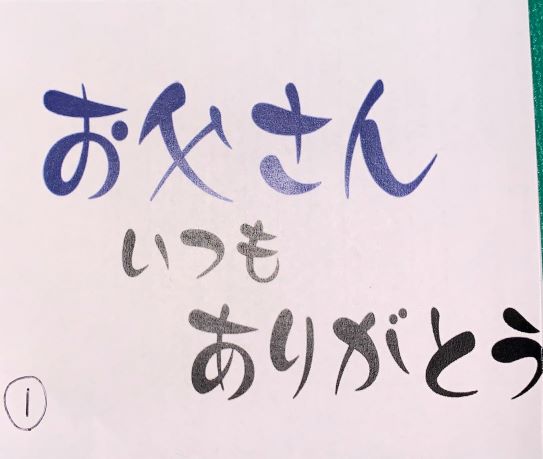 お父さん
いつも
ありがとう
①